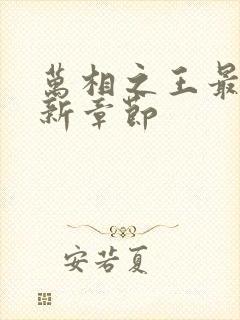 萬相之王最
新章節
安若夏